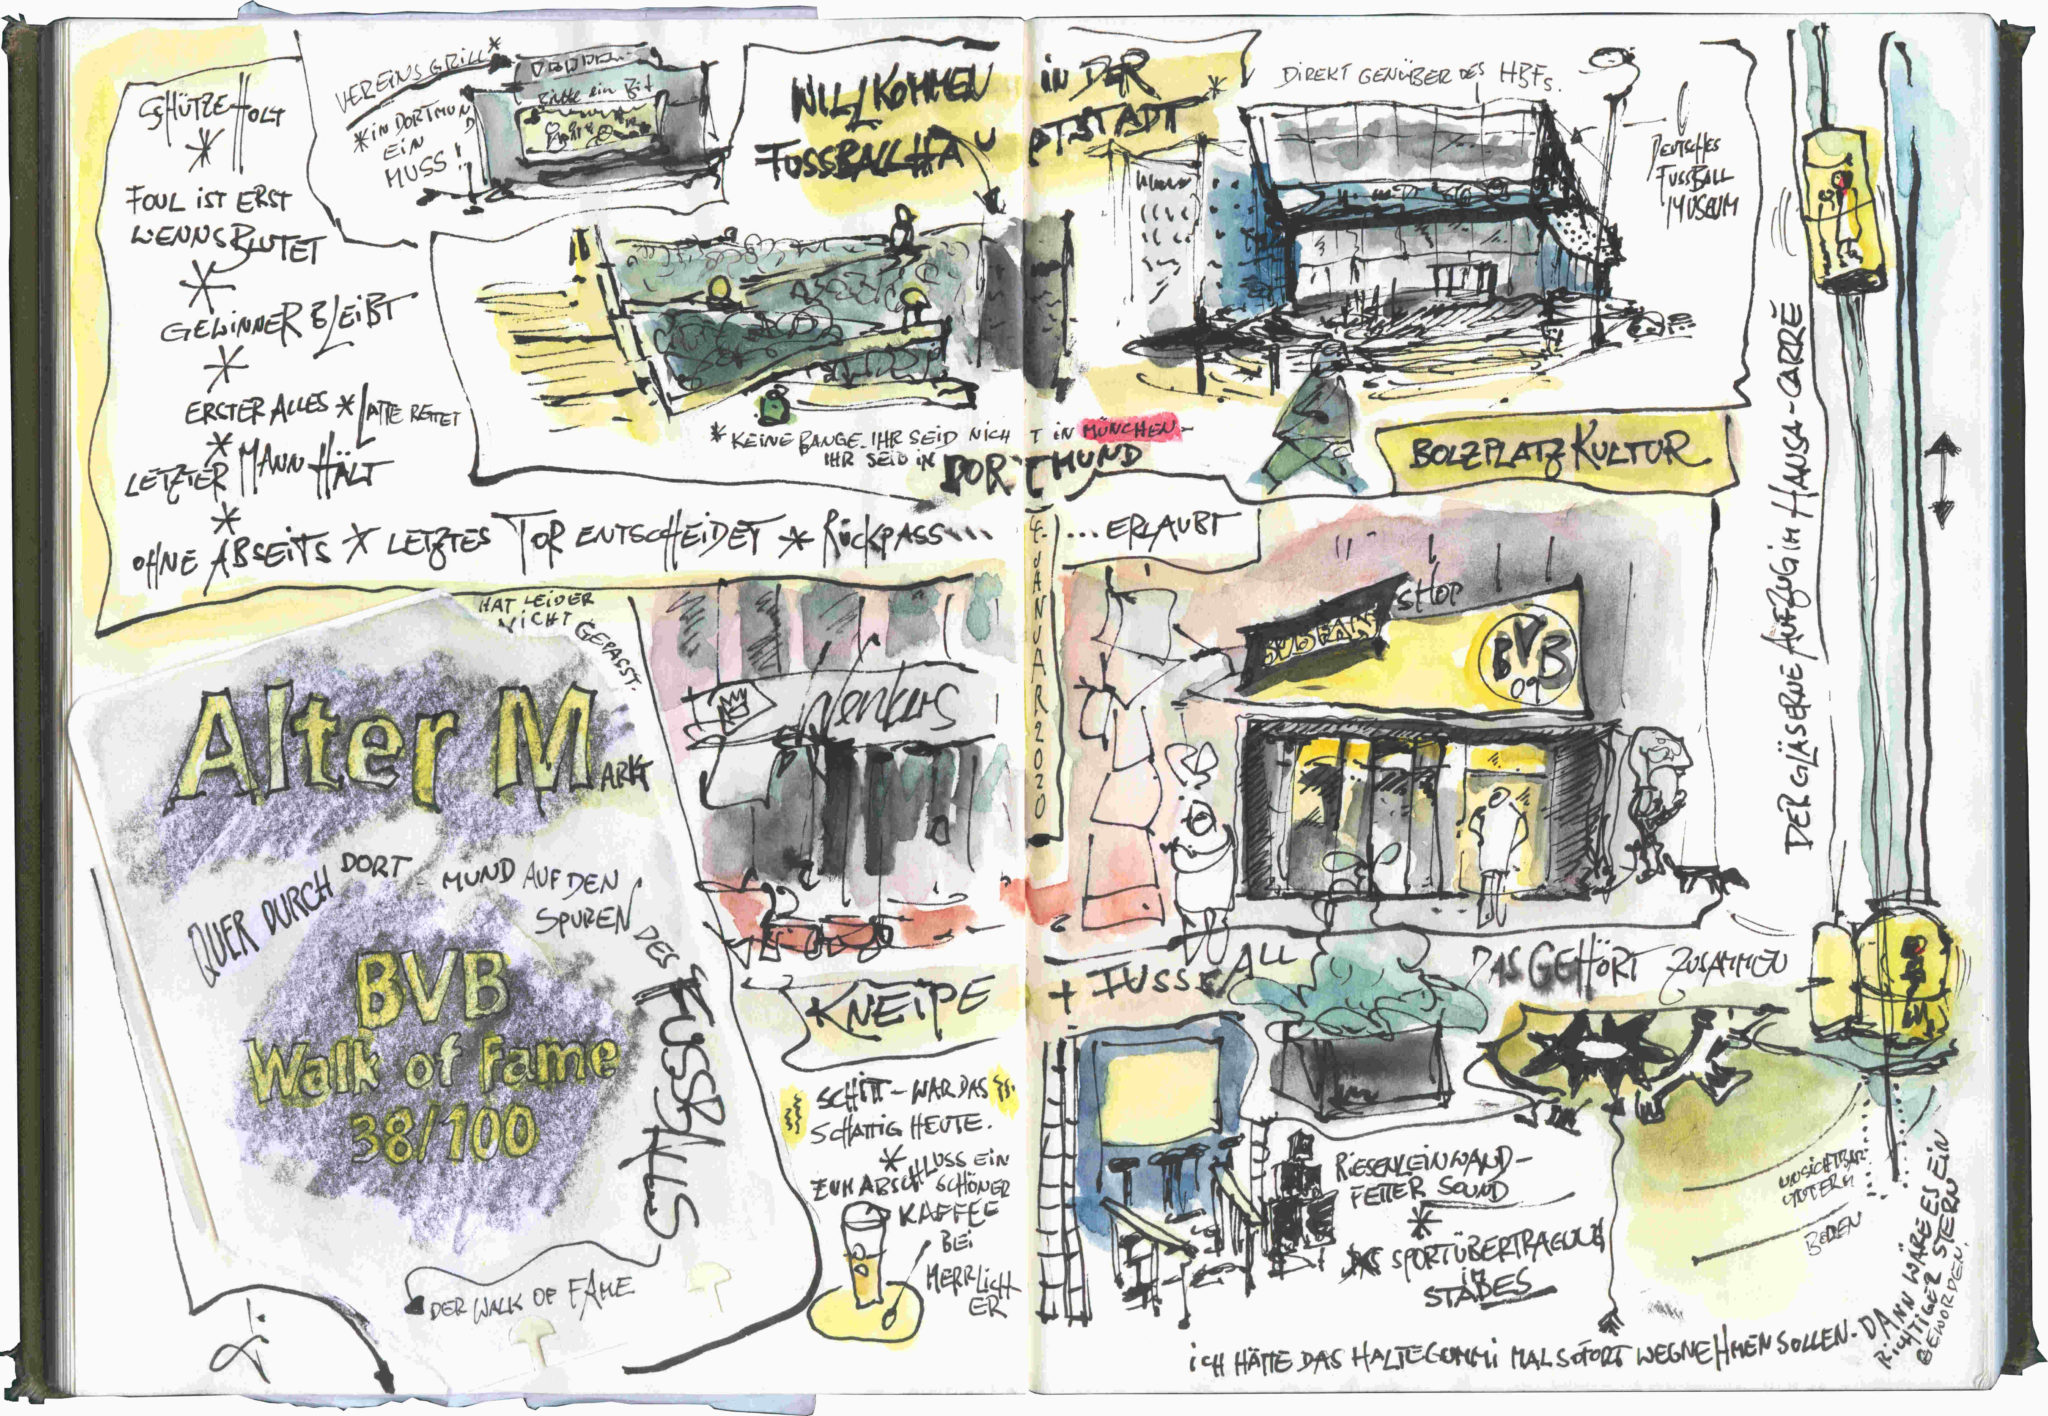 SCHÜTZE HOLT
*
FOUL IST ERST
WENNS BLUTET
*
GEWINNER BLEIBT
*
ERSTER ALLES * LATTE RETTET
*
LETZTER MANN HÄLT
*
OHNE ABSEITS * LETZTES TOR ENTSCHEIDET * RÜCKPASS....
...ERLAUBT
VEREINSGRILL*
*IN DORTMUND
EIN
MUSS!
WILLKOMMEN IN DER
FUSSBALLHAUPTSTADT*
DIREKT GENÜBER DES HBFS.
DEUTSCHES
FUSSBALL
MUSEUM
*KEINE BANGE. IHR SEID NICHT IN MÜNCHEN-
IHR SEID IN DORTMUND
BOLZPLATZKULTUR
DER GLÄSERNE AUFZUG IM HANSA-CARRÉ
4. JANUAR 2020
HAT LEIDER
NICHT GEPASST.
Alter MARKT
QUER DURCH DORTMUND AUF DEN
SPUREN DES FUSSBALLS
BVB
Walk of Fame
38/100
DER WALK OF FAME
Wenkers
BVB FAN SHOP
BVB
09
KNEIPE + FUSSBALL DAS GEHÖRT ZUSAMMEN
SCHITT-WAR DAS
SCHATTIG HEUTE.
*
ZUM ABSCHLUSS EIN
SCHÖNER
KAFFEE
BEI
HERRLICH
ER
RIESENLEINWAND-
FETTER SOUND
*
SPORTÜBERTRAGUNG
IM
STADES
UNSICHTBAR
UNTERM
BODEN
ICH HÄTTE DAS HALTEGUMMI MAL SOFORT WEGNEHMEN SOLLEN. DANN WÄRE ES EIN
RICHTIGER STERN
GEWORDEN.